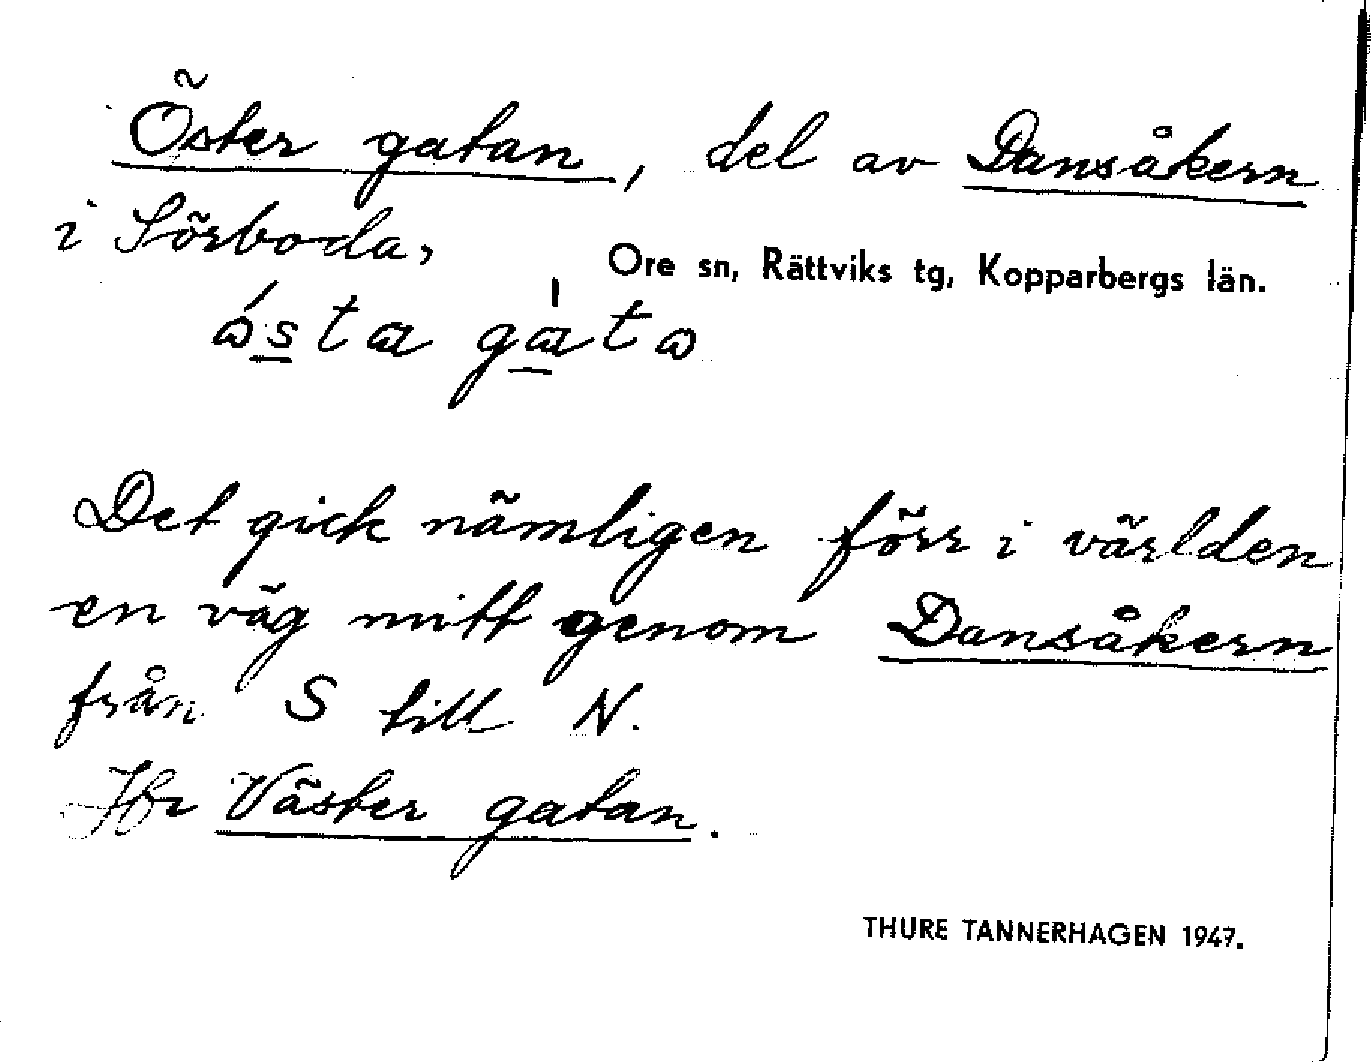 Öster gatan, del av Dansåkern
i Sörboda,
Ore sn, Rättviks tg, Kopparbergs län.
Det gick nämligen förr i världen
en väg mitt genom Dansåkern
från S till N.
Jfr Väster gatan.
THURE TANNERHAGEN 1947.